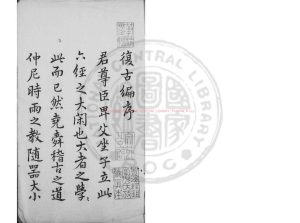 復古編序
君尊臣卑父坐子立此
六經之大閑也大者之學
此而已然堯舜稽古之道
仲尼時雨之教隨器大小